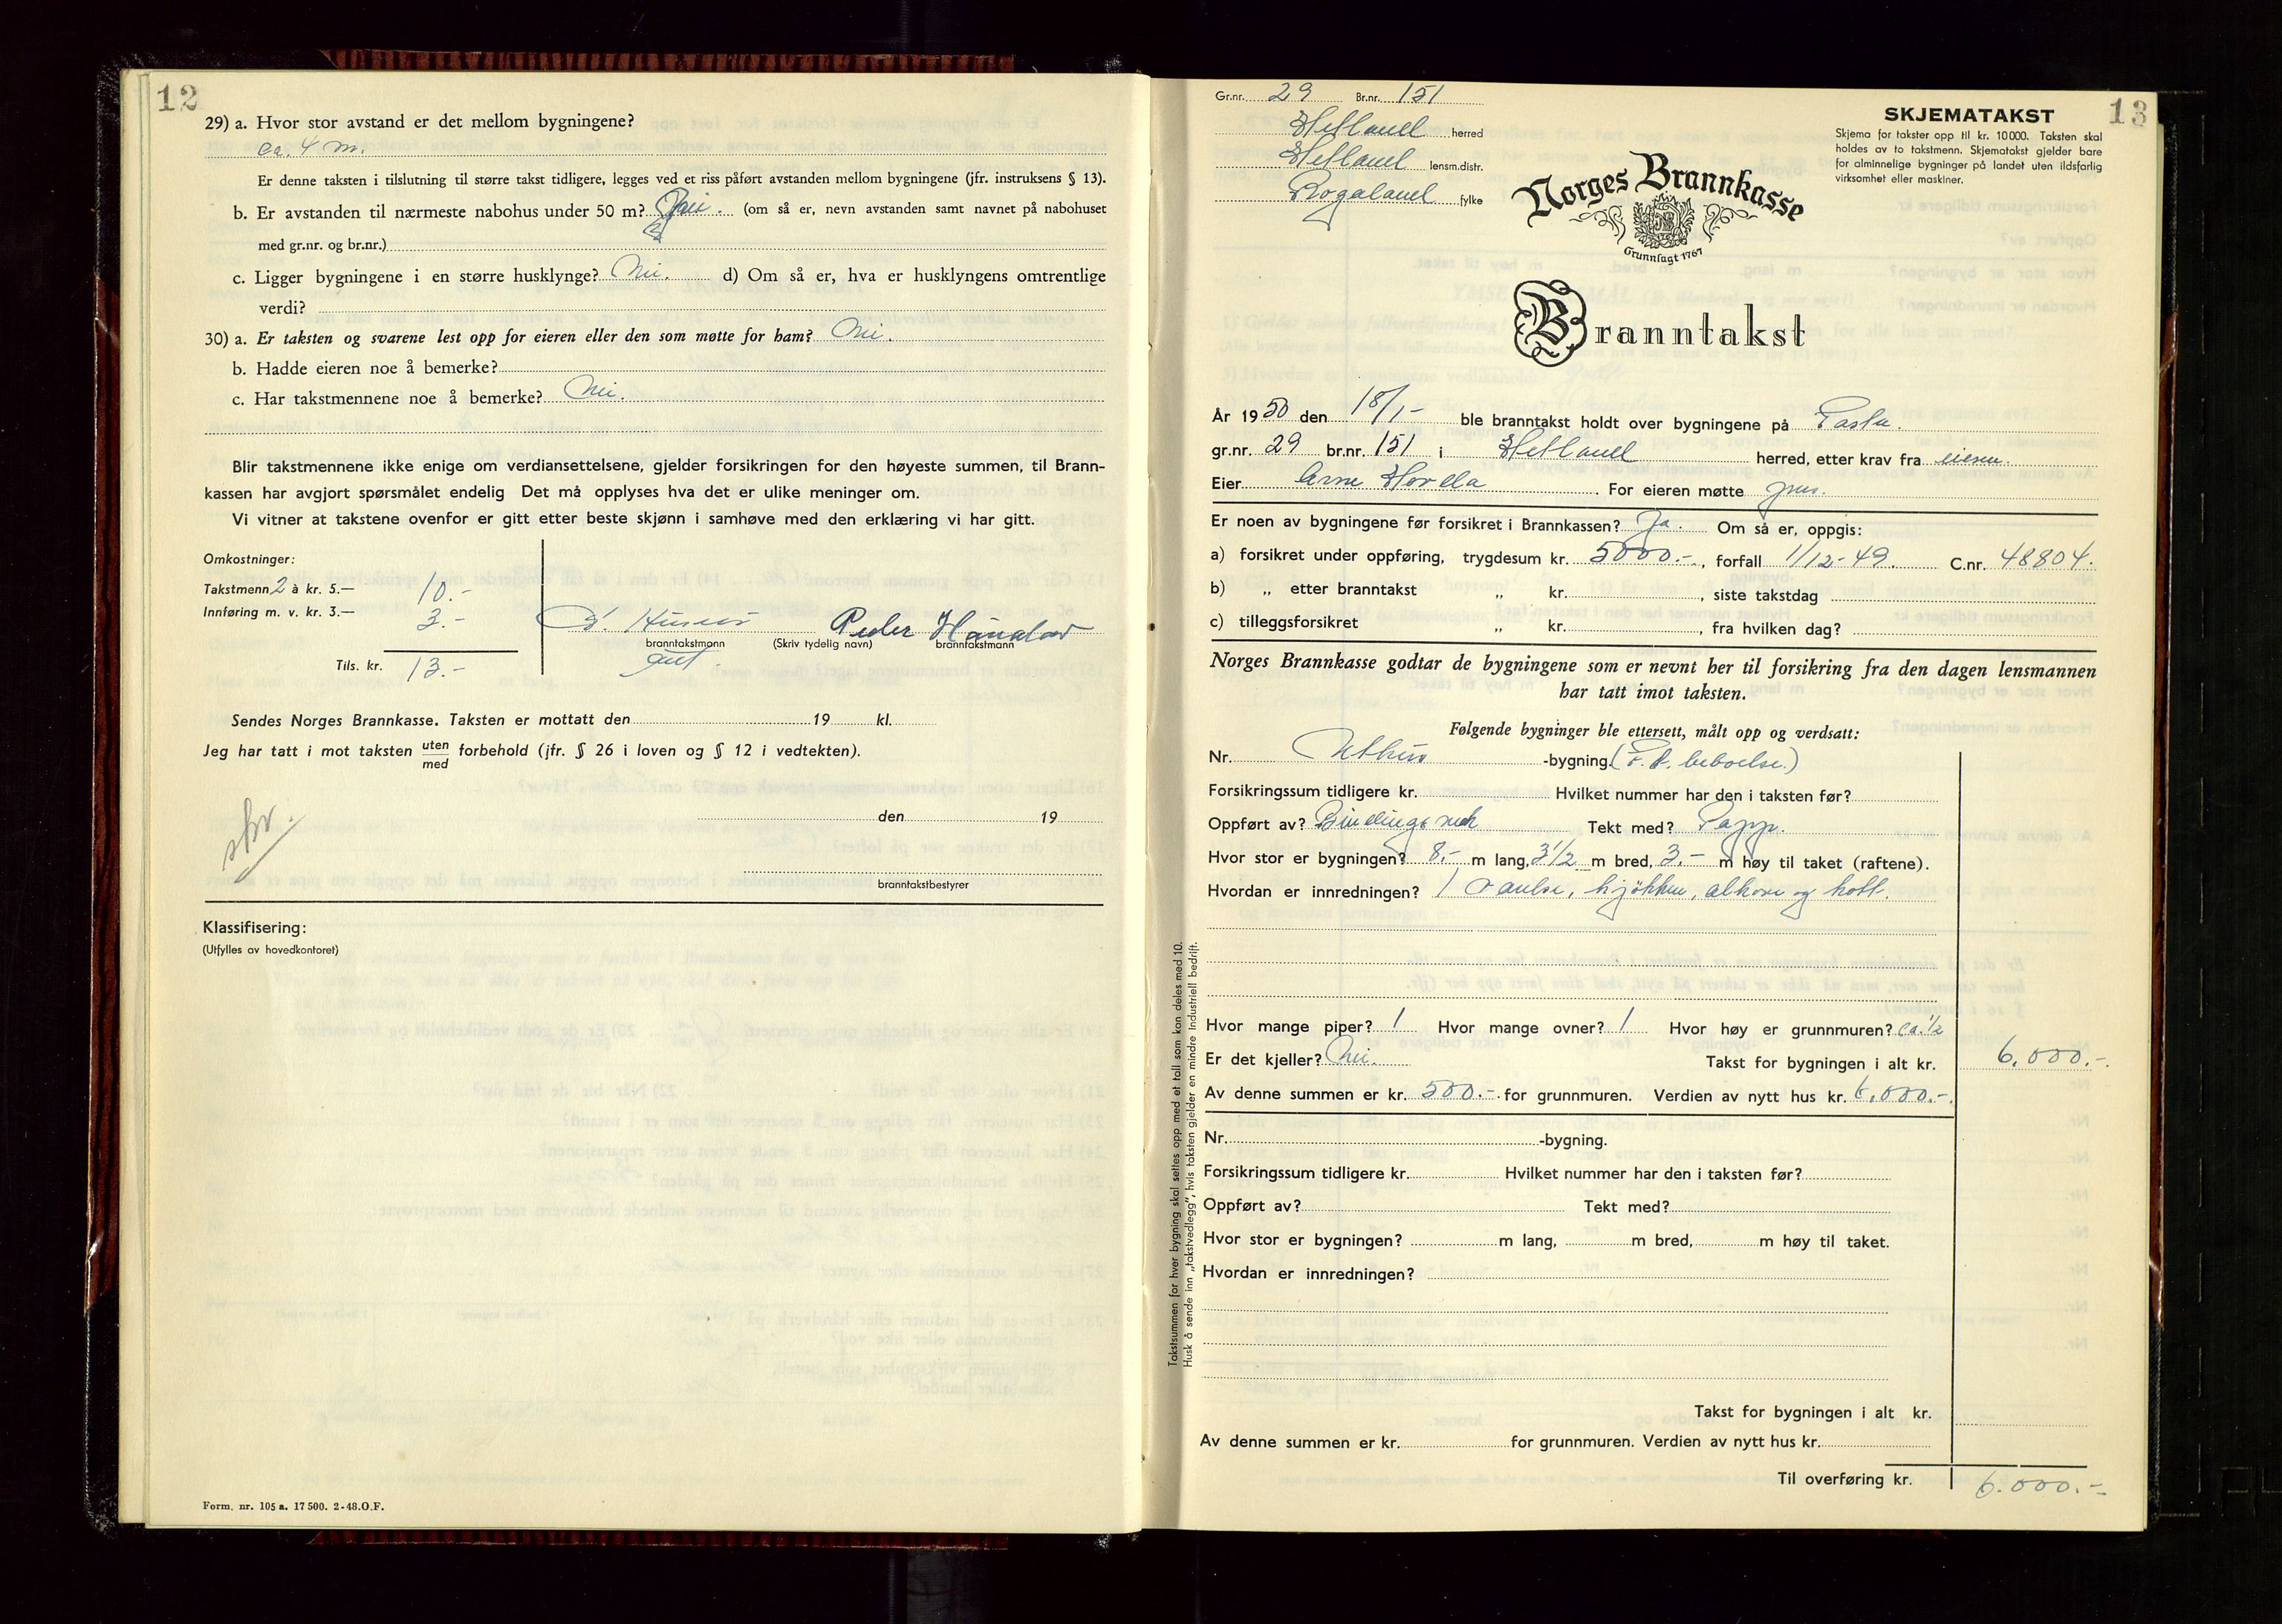 12
29) a. Hvor stor avstand er det mellom bygningene?
ca. 4 m.
Er denne taksten i tilslutning til større takst tidligere, legges ved et riss påført avstanden mellom bygningene (jfr. instruksens § 13).
b. Er avstanden til nærmeste nabohus under 50 m? Nei. (om så er, nevn avstanden samt navnet på nabohuset
med gr.nr. og br.nr.)
c. Ligger bygningene i en større husklynge? Nei. d) Om så er, hva er husklyngens omtrentlige
verdi?
30) a. Er taksten og svarene lest opp for eieren eller den som møtte for ham? Nei.
b. Hadde eieren noe å bemerke?
c. Har takstmennene noe å bemerke? Nei.
Blir takstmennene ikke enige om verdiansettelsene, gjelder forsikringen for den høyeste summen, til Brann-
kassen har avgjort spørsmålet endelig Det må opplyses hva det er ulike meninger om.
Vi vitner at takstene ovenfor er gitt etter beste skjønn i samhøve med den erklæring vi har gitt.
Omkostninger:
Takstmenn 2 à kr. 5.— 10.-
Innføring m. v. kr. 3.— 3.-
Peder
branntakstmann (Skriv tydelig navn) branntakstmann
Tils. kr. 13.-
Sendes Norges Brannkasse. Taksten er mottatt den 19 kl.
Jeg har tatt i mot taksten uten forbehold (jfr. § 26 i loven og § 12 i vedtekten).
med
den 19
branntakstbestyrer
Klassifisering:
(Utfylles av hovedkontoret)
Form. nr. 105 a. 17 500. 2-48.O.F.
13
Gr.nr. 29 Br.nr. 151
Hetland herred
Hetland lensm.distr.
Rogaland fylke
SKJEMATAKST
Skjema for takster opp til kr. 10 000. Taksten skal
holdes av to takstmenn. Skjematakst gjelder bare
for alminnelige bygninger på landet uten ildsfarlig
virksomhet eller maskiner.
Norges Brannkasse
Grunnlagt 1767
Branntakst
År 1950 den 18/1- ble branntakst holdt over bygningene på
gr.nr. 29 br.nr. 151 i Hetland herred, etter krav fra eieren.
Eier Arne For eieren møtte
Er noen av bygningene før forsikret i Brannkassen? Ja. Om så er, oppgis:
a) forsikret under oppføring, trygdesum kr. 5000.-, forfall 1/12-49. C.nr. 48804.
b) „ etter branntakst „ kr. , siste takstdag
c) tilleggsforsikret „ kr. , fra hvilken dag?
Norges Brannkasse godtar de bygningene som er nevnt her til forsikring fra den dagen lensmannen
har tatt imot taksten.
Følgende bygninger ble ettersett, målt opp og verdsatt:
Nr. Uthus -bygning. (P. t. beboelse.)
Forsikringssum tidligere kr. Hvilket nummer har den i taksten før?
Oppført av? Bindingsverk Tekt med? Papp.
Hvor stor er bygningen? 8.- m lang, 3 1/2 m bred, 3.- m høy til taket (raftene).
Hvordan er innredningen? 1 kjøkken, alkove og kott.
Hvor mange piper? 1 Hvor mange ovner? 1 Hvor høy er grunnmuren? ca. 1/2
Er det kjeller? Nei. Takst for bygningen i alt kr. 6.000.-
Av denne summen er kr. 500.- for grunnmuren. Verdien av nytt hus kr. 6.000.-
Nr. -bygning.
Forsikringssum tidligere kr. Hvilket nummer har den i taksten før?
Oppført av? Tekt med?
Hvor stor er bygningen? m lang, m bred, m høy til taket.
Hvordan er innredningen?
Takst for bygningen i alt kr.
Av denne summen er kr. for grunnmuren. Verdien av nytt hus kr.
Til overføring kr. 6.000.-
Takstsummen for hver bygning skal settes opp med et tall som kan deles med 10.
Husk å sende inn „takstvedlegg”, hvis taksten gjelder en mindre industriell bedrift.